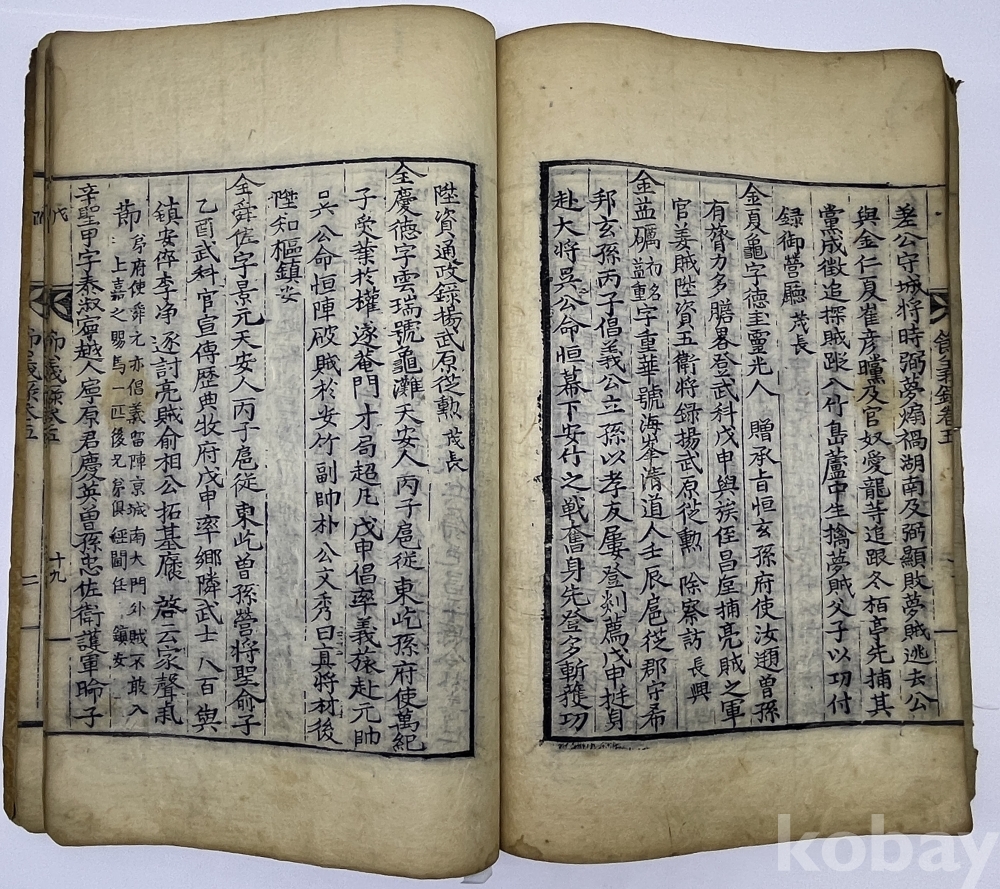 差公守城將時弼夢煽禍湖南及弼顯敗夢賊逃去公
與金仁夏崔彦䵃及官奴愛龍等追跟冬栢亭先捕其
黨成徵追探賊蹤入竹島蘆中生擒夢賊父子以功付
録御營廳 茂長
金夏龜字德圭靈光人 贈承旨恒玄孫府使汝𨓏曾孫
有膂力多膽畧登武科戊申與族侄昌垕捕亮賊之軍
官姜賊陞資五衛將録揚武原從勳 除察訪 長興
金益礪初名益重字重華號海峯淸道人壬辰扈從郡守希
邦玄孫丙子倡義公立孫以孝友屢登剡薦戊申挺身
赴大將吳公命恒幕下安竹之戰奮身先登多斬獲功
節義錄卷五
陞資通政録揚武原從勳 茂長
全慶德字雲瑞號龜灘天安人丙子扈從東屹孫府使萬紀
子受業於權遂菴門才局超凡戊申倡率義旅赴元帥
吳公命恒陣破賊於安竹副帥朴公文秀曰真將材後
陞知樞 鎮安
全舜佐字景元天安人丙子扈從東屹曾孫營將聖俞子
乙酉武科官宣傳歷典牧府戊申率鄉隣武士八百與
鎮安倅李淨逐討亮賊俞相公拓基褒 啓云家聲夙
節弟府使舜元亦倡義留陣京城南大門外賊不敢入
上嘉之賜馬一匹後兄弟俱經閫任 鎮安
辛聖甲字泰叔寧越人扈原君慶英曾孫忠佐衛護軍昤子
節義錄卷五
十九
kobay